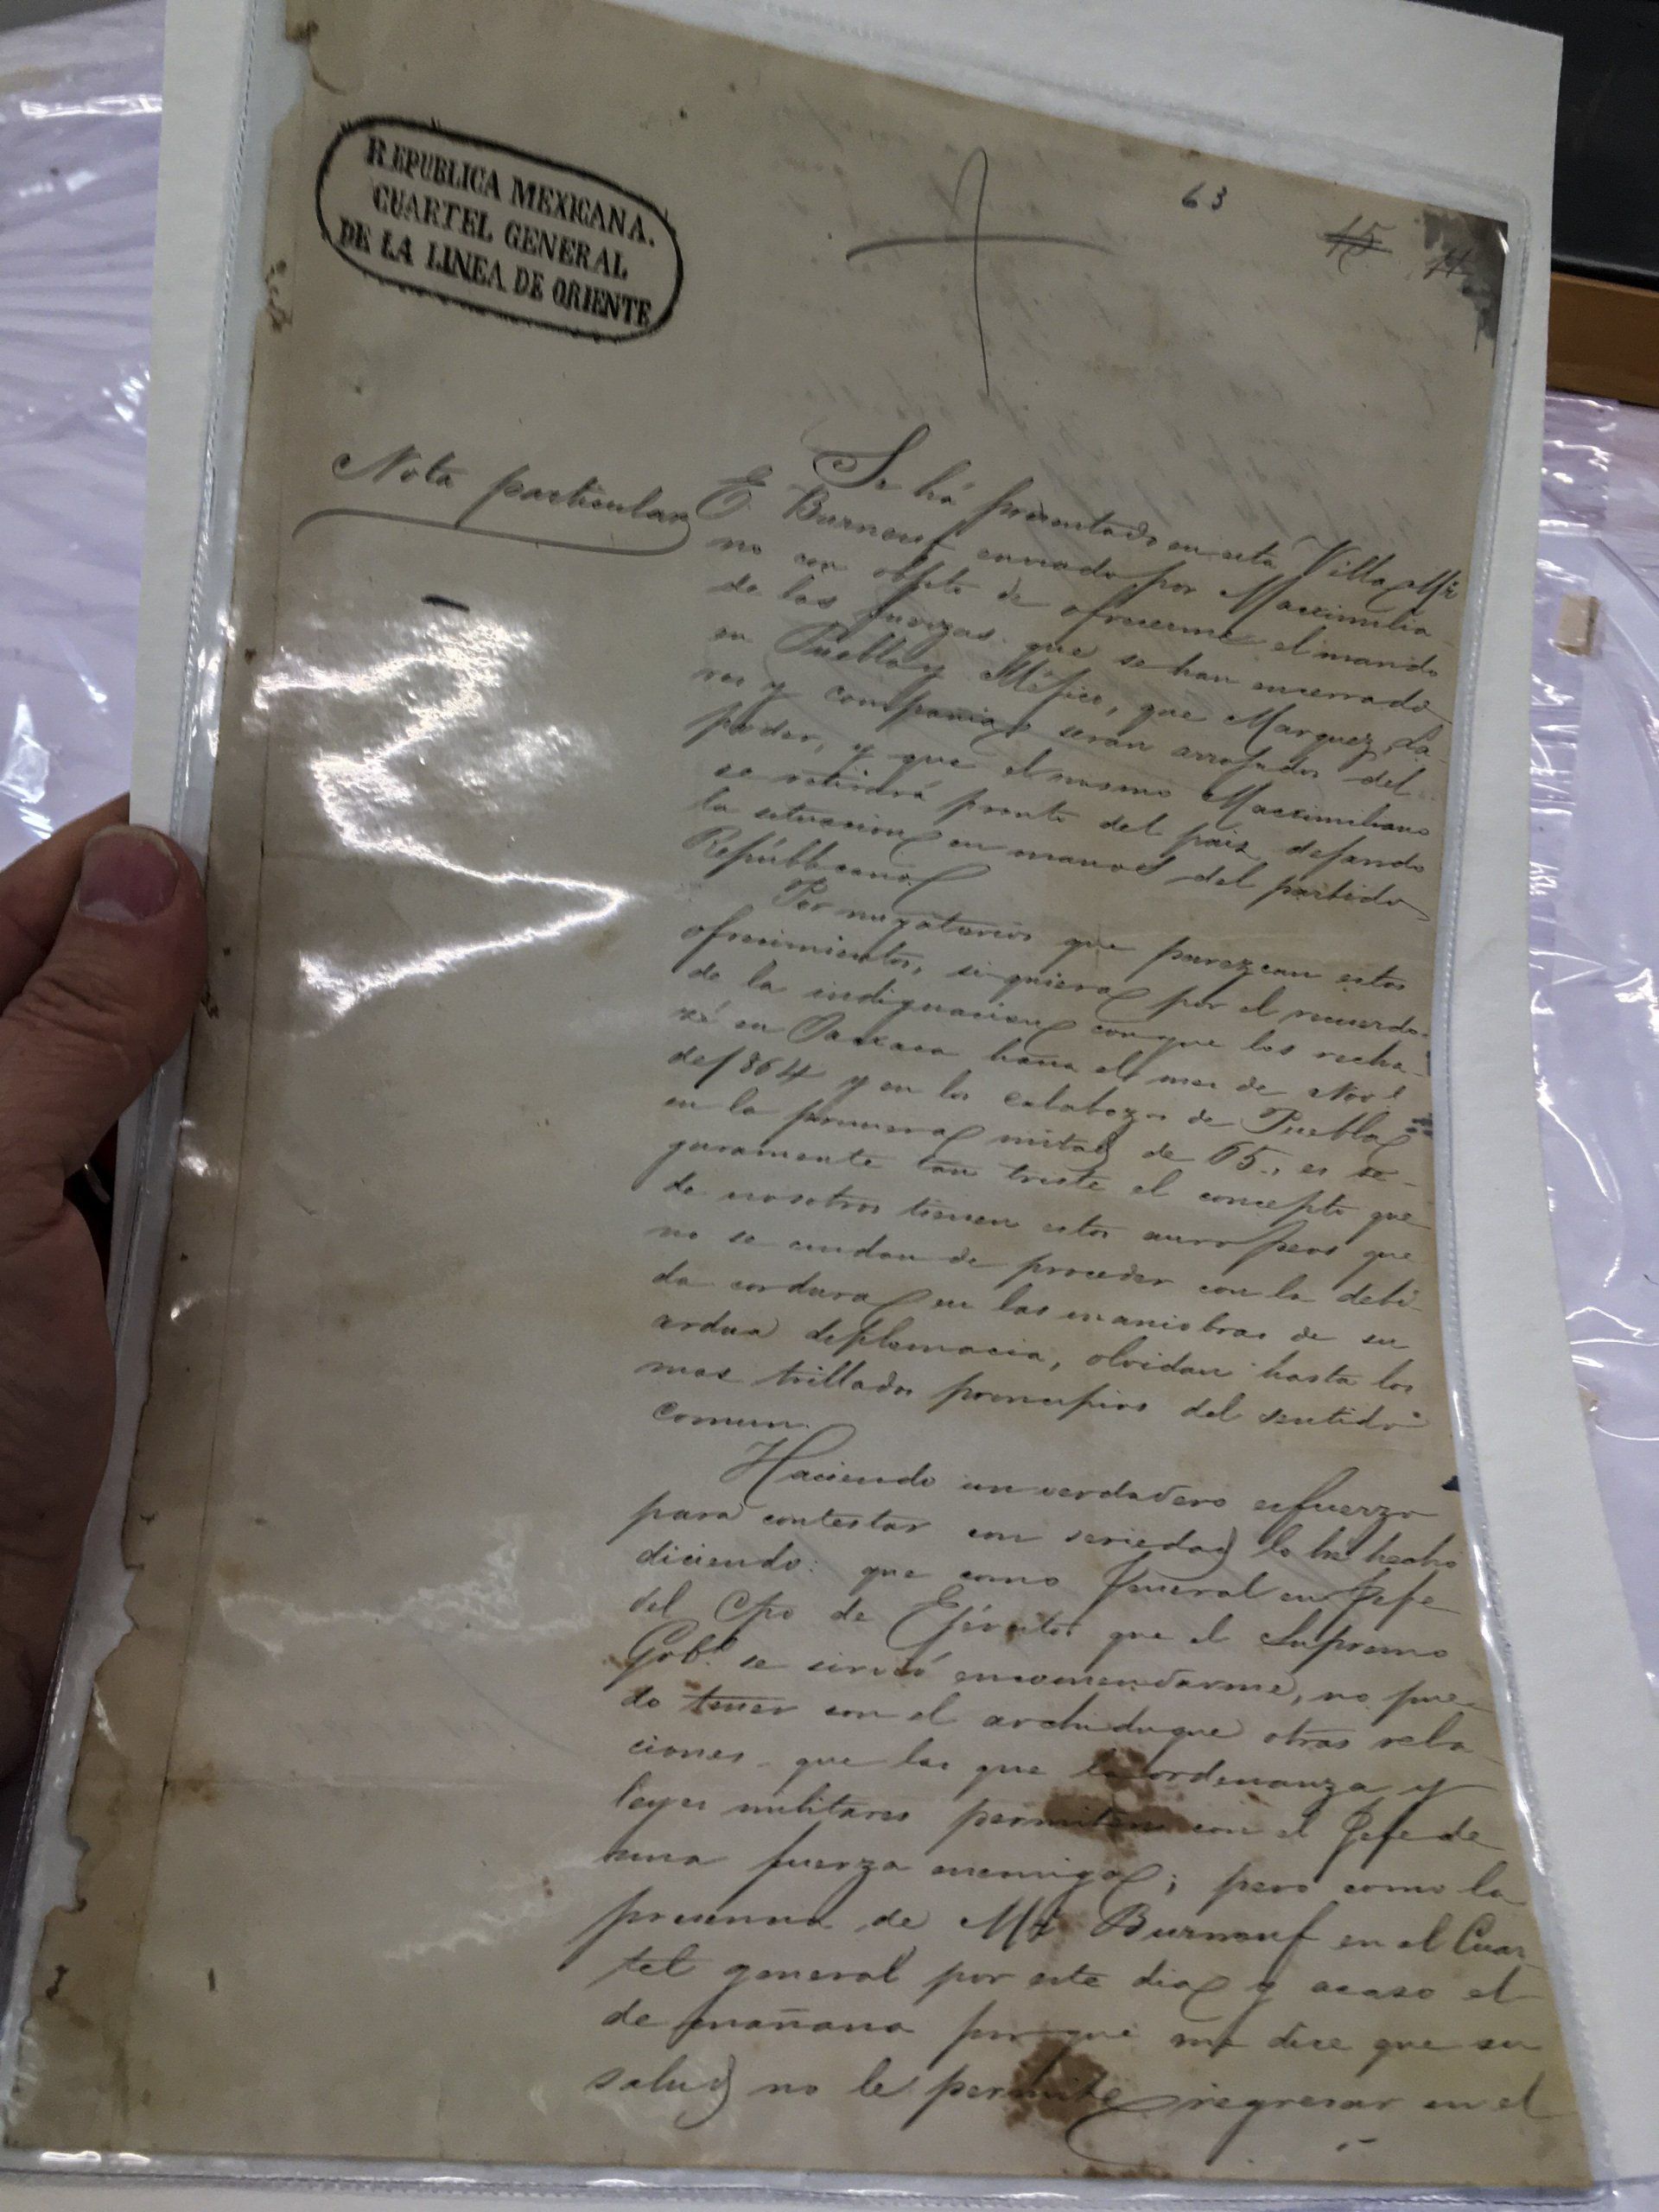 REPUBLICA MEXICANA.
CUARTEL GENERAL
DE LA LINEA DE ORIENTE
63
15
Nota particular
Se há presentado en esta Villa Mr.
E. Burnouf enviado por Maximilia-
no con objeto de ofrecerme el mando
de las fuerzas que se han encerrado
en Puebla y Méjico, que Marquez, La-
res y compañia seran arrojados del
poder, y que el mismo Maximiliano
se retirará pronto del pais, dejando
la situacion en manos del partido
Repúblicano.
Por nugatorios que parezcan estos
ofrecimientos, siquiera por el recuerdo
de la indignacion con que los recha-
zé en Oaxaca hacia el mes de Nove.
de 1864 y en los calabozos de Puebla
en la primera mitad de 65., es se-
guramente tan triste el concepto que
de nosotros tienen estos europeos que
no se cuidan de proceder con la debi-
da cordura en las maniobras de su
ardua diplomacia, olvidan hasta los
mas trillados principios del sentido
comun.
Haciendo un verdadero esfuerzo
para contestar con seriedad lo he hecho
diciendo: que como General en Jefe
del Cpo de Ejército que el Supremo
Gob.º se sirvió encomendarme, no pue-
do tener con el archiduque otras rela-
ciones que las que la ordenanza y
leyes militares permiten con el Jefe de
una fuerza enemiga; pero como la
presencia de Mr. Burnouf en el Cuar-
tel general por este dia y acaso el
de mañana porque me dice que su
salud no le permite regresar en el